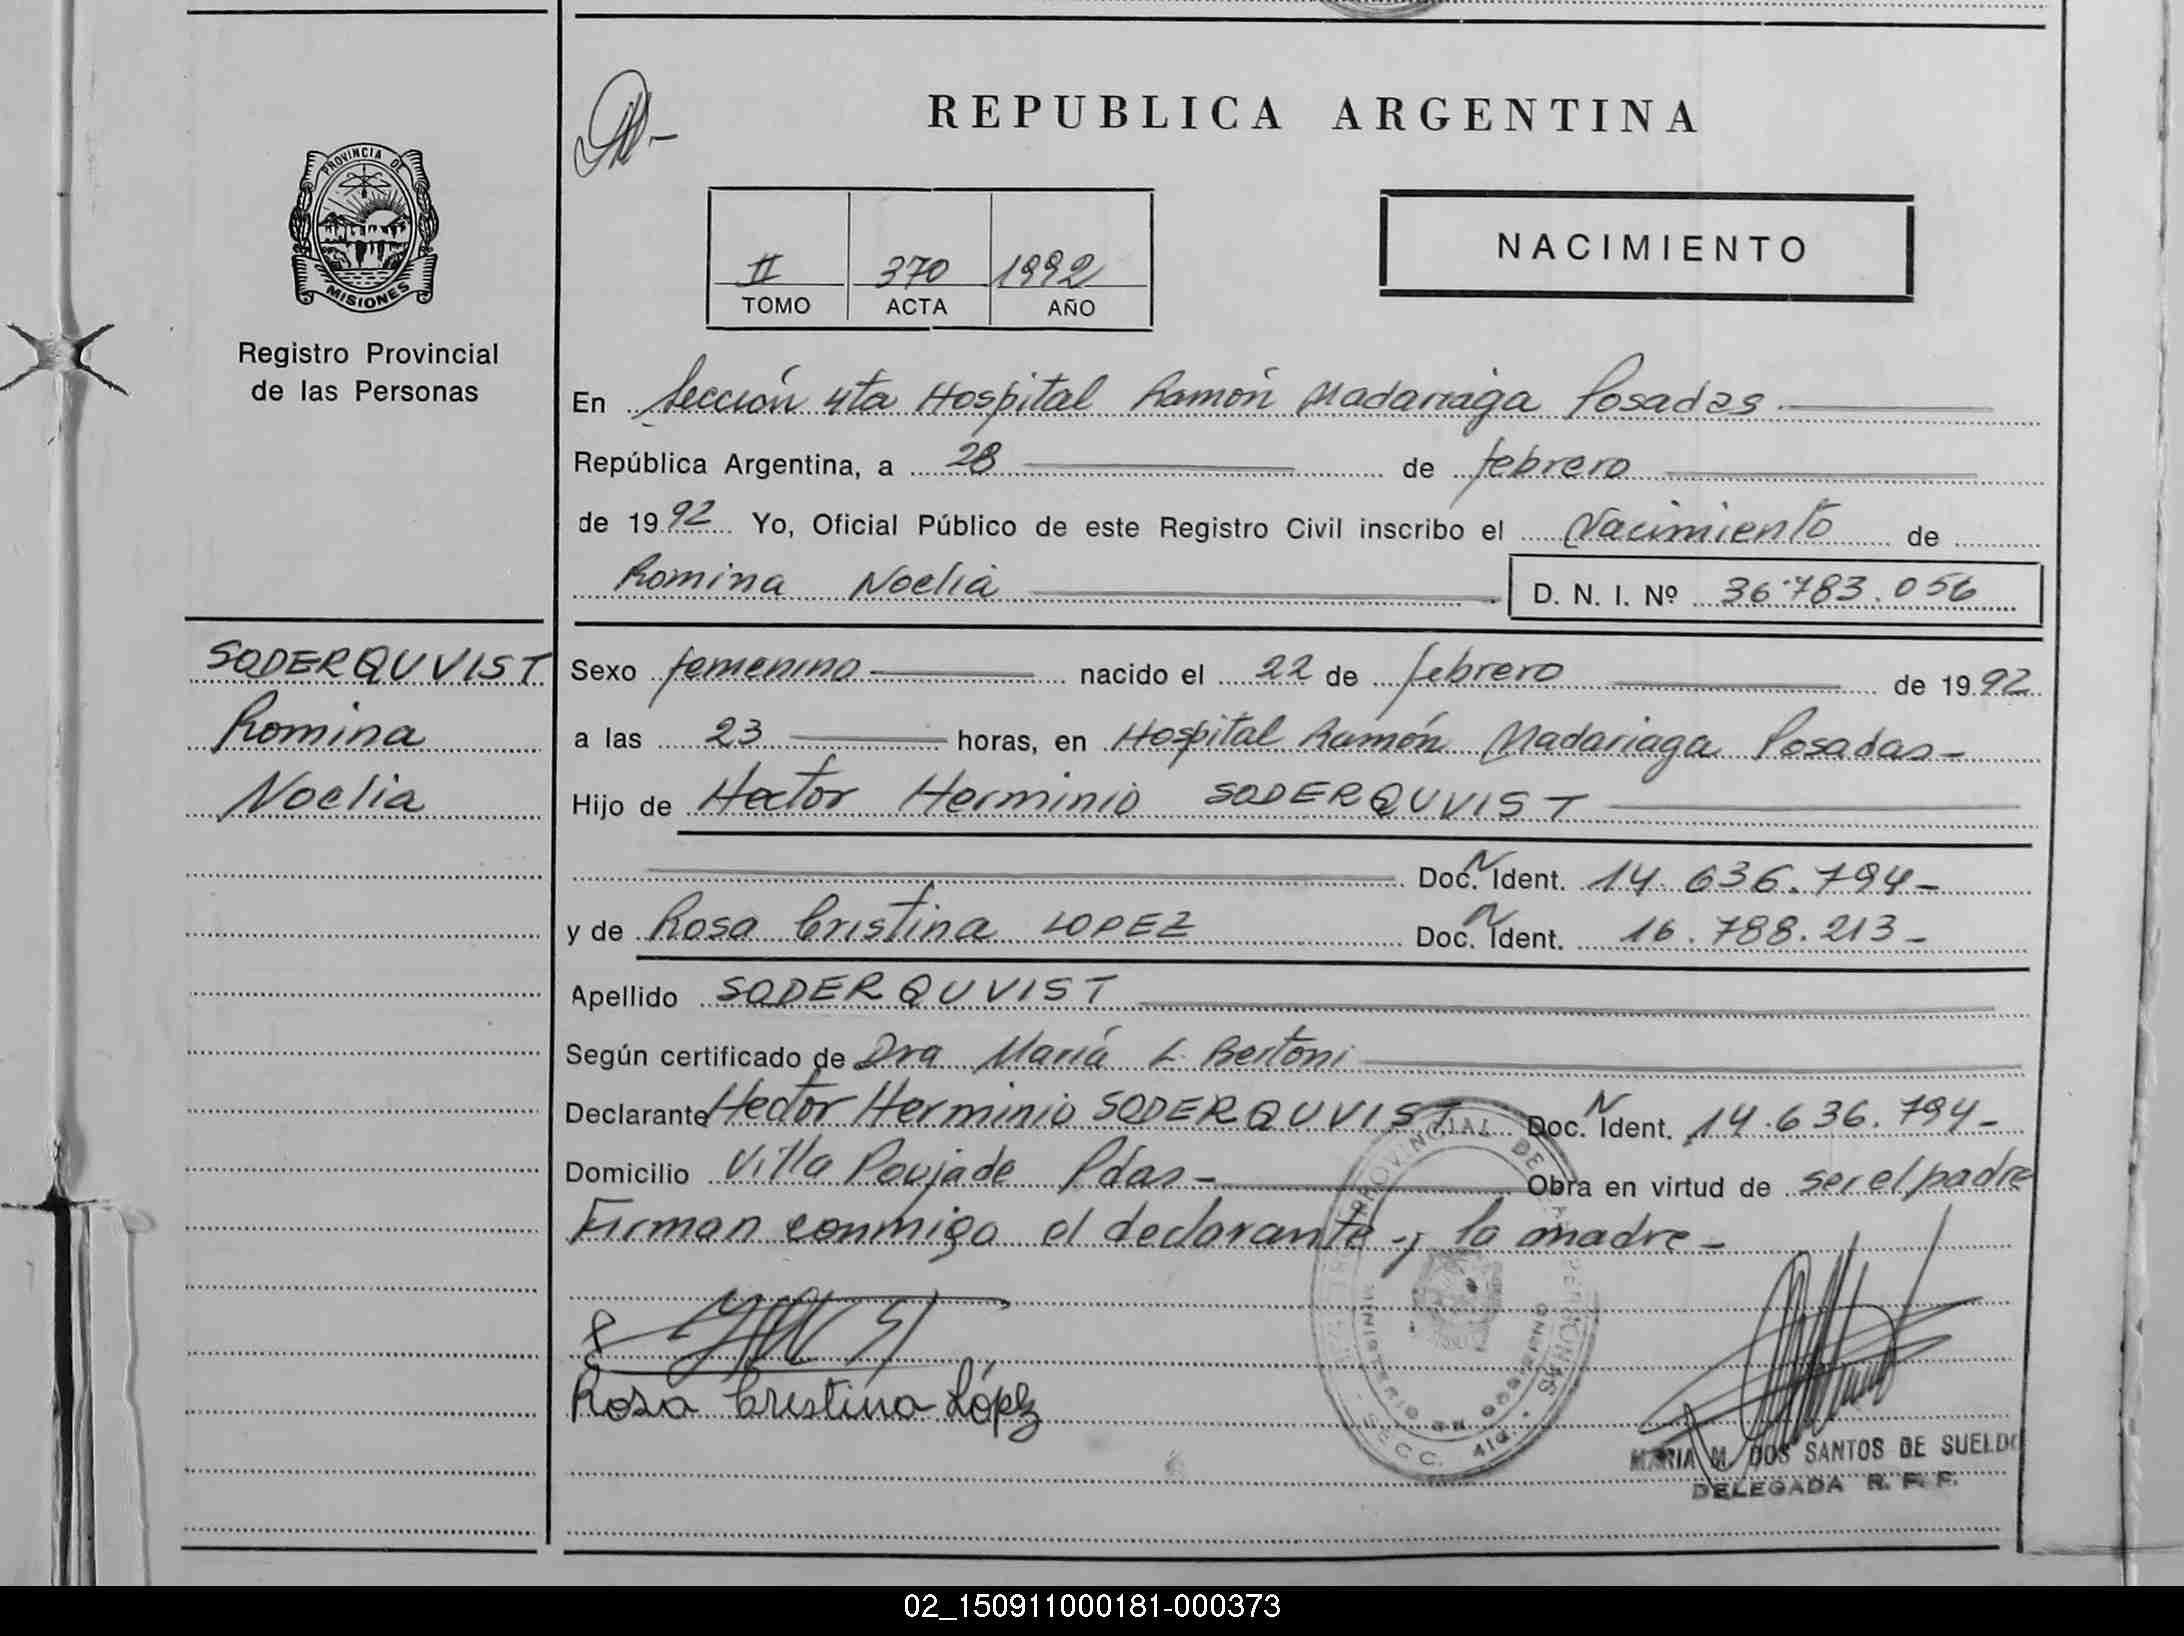 REPUBLICA ARGENTINA
PROVINCIA DE
MISIONES
Registro Provincial
de las Personas
II 370 1992
TOMO ACTA AÑO
NACIMIENTO
En Sección 4ta Hospital Ramón Madariaga Posadas.
República Argentina, a 28 de febrero
de 1992 Yo, Oficial Público de este Registro Civil inscribo el Nacimiento de
Romina Noelia D. N. I. Nº 36.783.056
SODERQUVIST
Romina
Noelia
Sexo femenino nacido el 22 de febrero de 1992
a las 23 horas, en Hospital Ramón Madariaga Posadas-
Hijo de Hector Herminio SODERQUVIST
Doc. N Ident. 14.636.794-
y de Rosa Cristina LOPEZ Doc. N Ident. 16.788.213-
Apellido SODERQUVIST
Según certificado de Dra María L. Bertoni
Declarante Hector Herminio SODERQUVIST Doc. N Ident. 14.636.794-
Domicilio Villa Poujade Pdas- Obra en virtud de ser el padre
Firman conmigo el declarante y la madre-
Rosa Cristina López
PROVINCIAL DE LAS PERSONAS
MINISTERIO DE GOBIERNO
SECC. 4ta.
MARIA M. DOS SANTOS DE SUELDO
DELEGADA R. P. P.
02_150911000181-000373